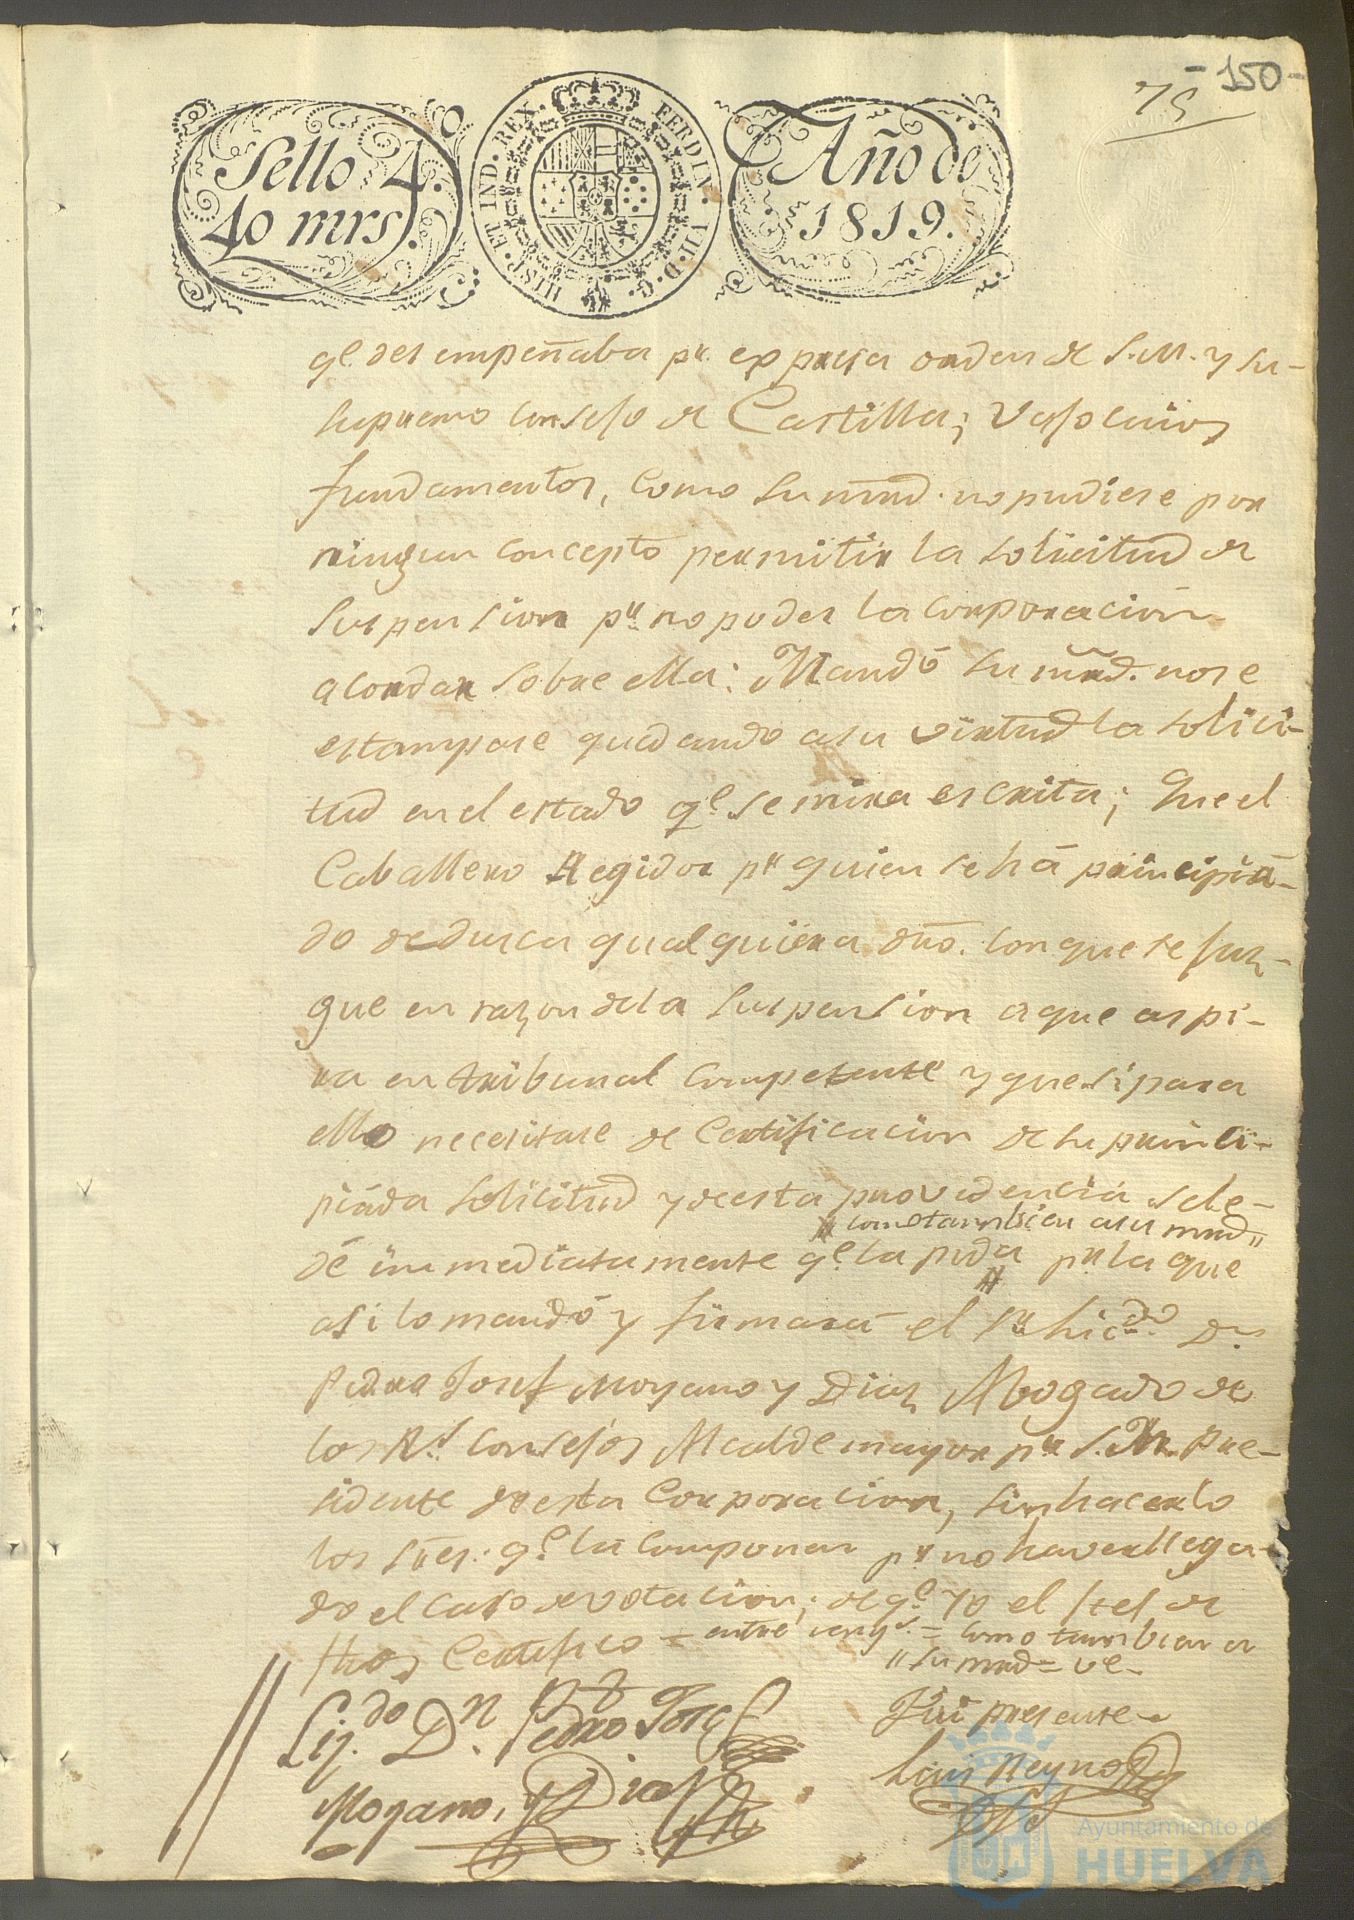 -150-
75
Sello 4.
40 mrs.
HISP. ET IND. REX. FERDIN. VII. D. G.
Año de
1819.
qe. desempeñaba pr. expresa orden de S.M. y su
supremo Consejo de Castilla; vajo cuios
fundamentos, como su mrd. no pudiese por
ningun concepto permitir la solicitud de
suspension pr. no poder la corporación
acordar sobre ella: Mandó su mrd. no se
estampase quedando a su virtud la solici-
tud en el estado qe. se mira escrita; Que el
Caballero Regidor pr. quien se há principiá-
do deduzca qualquiera dño. con que se juz-
gue en razon de la suspension a que aspi-
ra en tribunal competente y que si para
ello necesitase de Certificacion de su princi-
piáda solicitud y de esta providencia se le
como tambien a su mrd
dé immediatamente qe. la pida pr. la que
asi lo mandó y firmará el Sr. Licdo. Dn.
Pedro Josef Moyano y Diaz Abogado de
los Rs. Consejos Alcalde mayor pr. S.M. Pre-
sidente de esta Corporacion, sin hacerlo
los Sres. qe. la componen pr. no haver llega-
do el caso de votacion; de qe. yo el de
Certifico = entre rengs. = como tambien a
su mrd = ve-
Lizdo. Dn. Pedro Josef
Moyano, y Diaz
Fui presente
Luis Reyno
Ayuntamiento de
HUELVA